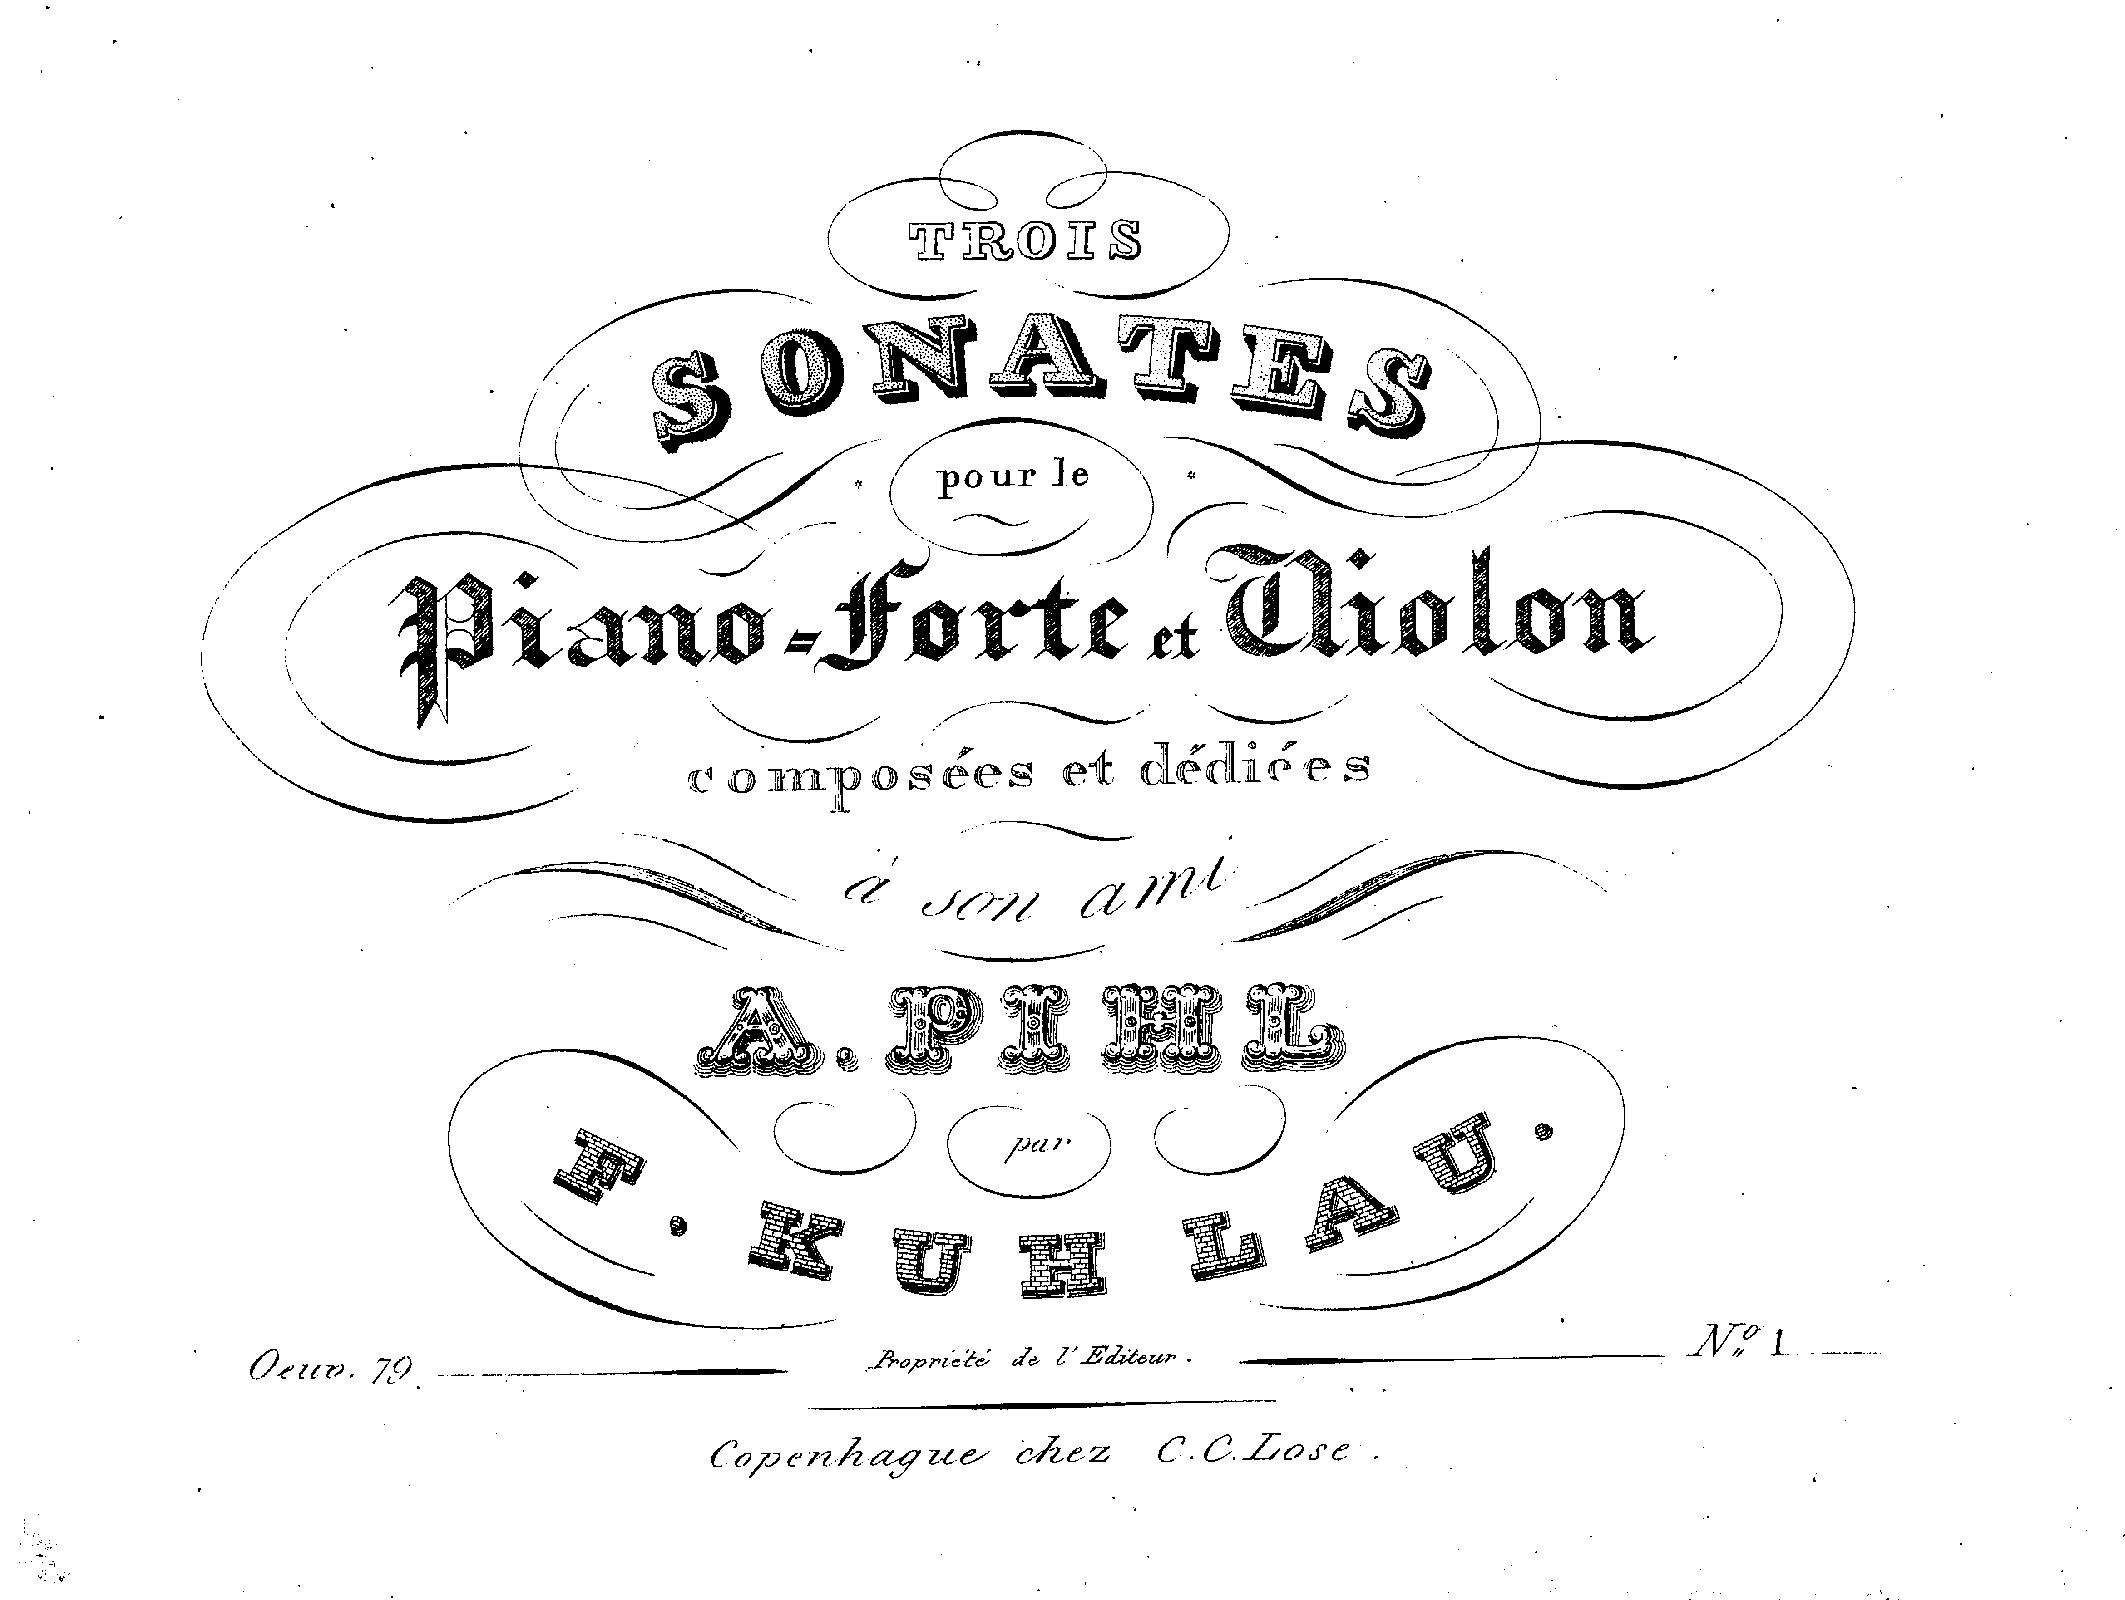 TROIS
SONATES
pour le
Piano=Forte et Violon
composées et dédiées
à son ami
A. PIHL
par
F. KUHLAU.
Oeuv. 79. Propriété de l'Editeur. No. 1
Copenhague chez C.C. Lose.